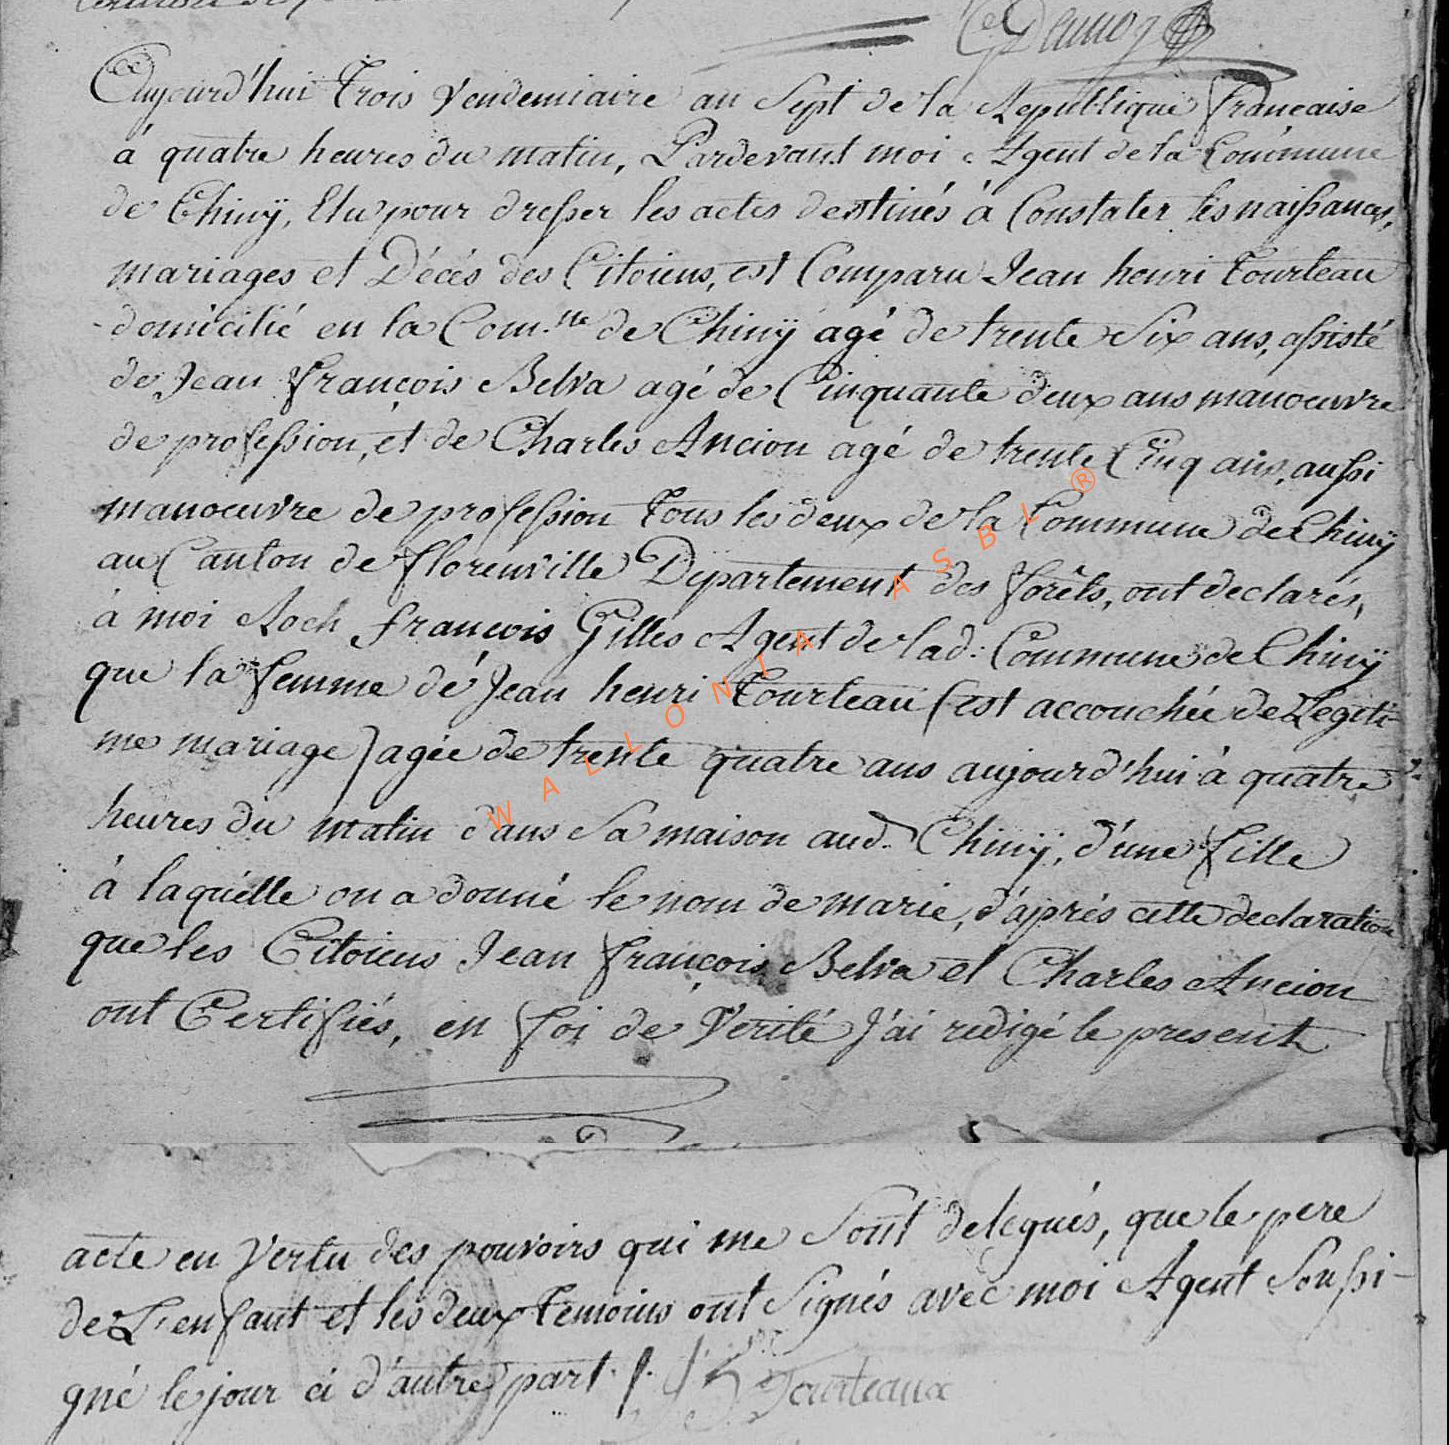 Aujourd'hui trois vendemiaire an Sept de la Republique francaise
à quatre heures du matin, Pardevant moi Agent de la Commune
de Chinÿ, Elu pour dresser les actes destinés à Constater les naissances,
mariages et Décés des Citoiens, est Comparu Jean henri tourteau
domicilié en la Com.ne de Chinÿ agé de trente Six ans, assisté
de Jean françois Belva agé de Cinquante deux ans manoeuvre
de profession, et de Charles Ancion agé de trente Cinq ans, aussi
manoeuvre de profession tous les deux de la Commune de Chinÿ
au Canton de florenville Département des forêts, ont declarés,
à moi Roch francois Gilles Agent de lad: Commune de Chinÿ
que la femme de Jean henri Tourteau (est accouchée de Legiti-
me mariage) agée de trente quatre ans aujourd'hui à quatre
heures du matin dans Sa maison aud. Chinÿ, d'une fille
à laquelle on a donné le nom de marie, d'après cette declaration
que les Citoiens Jean françois Belva et Charles Ancion
ont Certifiés, en foi de Verité J'ai redigé le present
acte en vertu des pouvoirs qui me Sont delegués, que le pere
de L'enfant et les deux temoins ont Signés avec moi Agent Soussi-
gné le jour ci d'autre part.
Tourteaux
WALLONIA ASBL ®